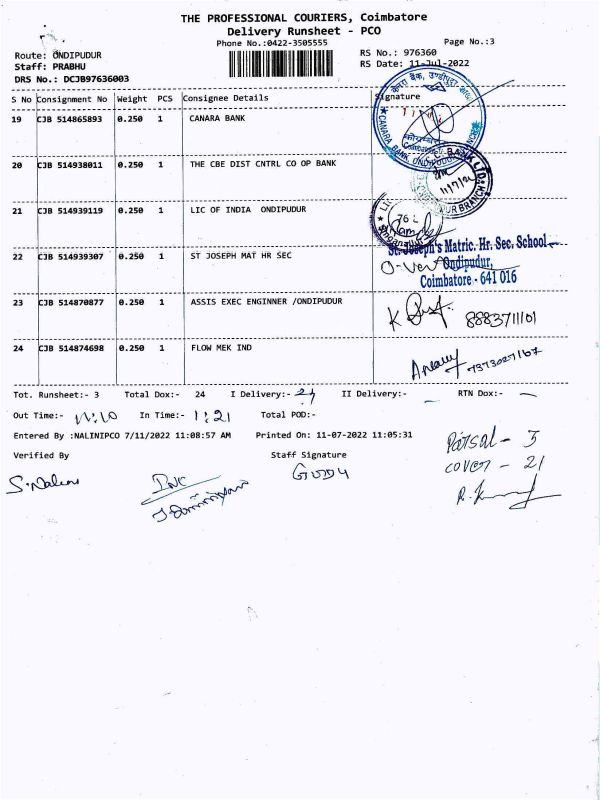 THE PROFESSIONAL COURIERS, Coimbatore
Delivery Runsheet - PCO
Phone No.:0422-3505555
Page No.:3
Route: ONDIPUDUR
RS No.: 976360
Staff: PRABHU
RS Date: 11-Jul-2022
DRS No.: DCJB97636003
S No Consignment No Weight PCS Consignee Details Signature
19 CJB 514865893 0.250 1 CANARA BANK
20 CJB 514938011 0.250 1 THE CBE DIST CNTRL CO OP BANK
21 CJB 514939119 0.250 1 LIC OF INDIA ONDIPUDUR
76 L
22 CJB 514939307 0.250 1 ST JOSEPH MAT HR SEC
St. Joseph's Matric. Hr. Sec. School
Ondipudur,
Coimbatore - 641 016
23 CJB 514870877 0.250 1 ASSIS EXEC ENGINNER /ONDIPUDUR
8883711101
24 CJB 514874698 0.250 1 FLOW MEK IND
7373027167
Tot. Runsheet:- 3 Total Dox:- 24 I Delivery:- 24 II Delivery:- RTN Dox:-
Out Time:- 11:10 In Time:- 1:21 Total POD:-
Entered By :NALINIPCO 7/11/2022 11:08:57 AM Printed On: 11-07-2022 11:05:31
Parsal - 3
cover - 21
Verified By Staff Signature